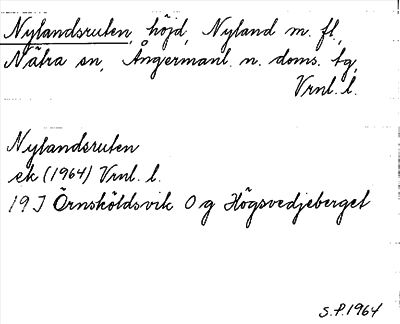 Nylandsruten, höjd, Nyland m. fl.,
Nätra sn, Ångermanl. n. doms. tg,
Vrnl. l.
Nylandsruten
ek (1964) Vrnl. l.
19 J Örnsköldsvik O g Högsvedjeberget
S.P. 1964